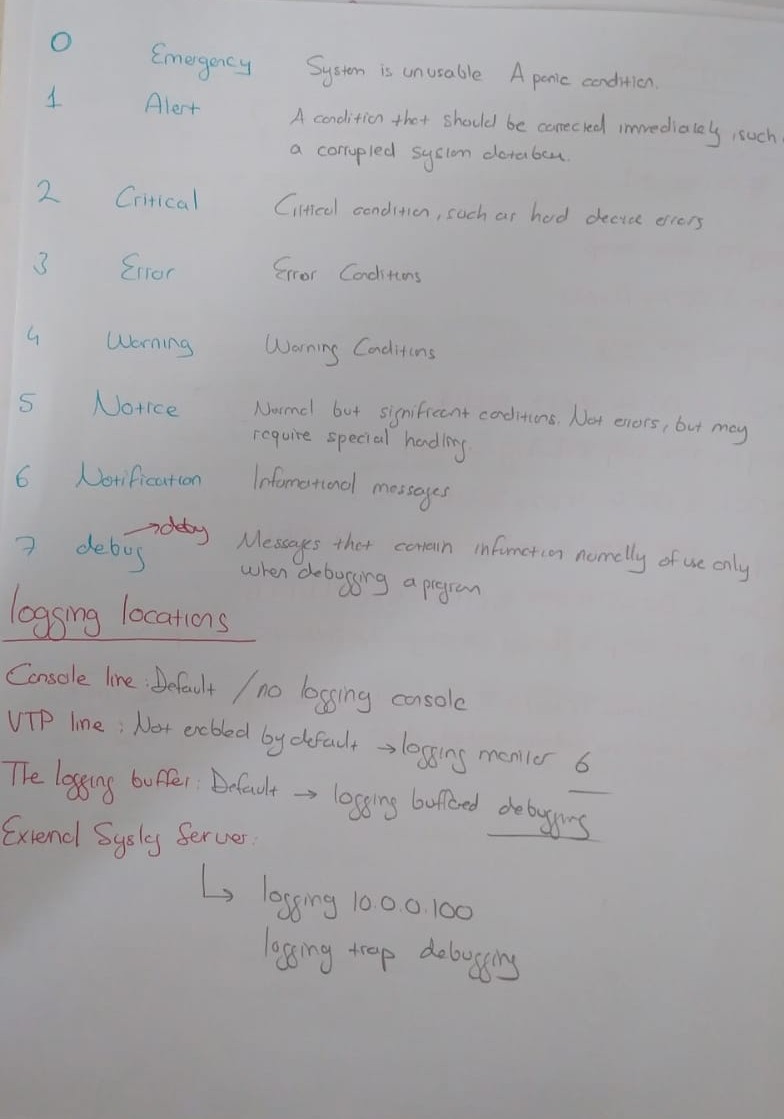 0 Emergency System is unusable A panic condition.
1 Alert A condition that should be corrected immediately, such
a corrupted system database.
2 Critical Critical condition, such as hard device errors
3 Error Error Conditions
4 Warning Warning Conditions
5 Notice Normal but significant conditions. Not errors, but may
require special handling.
6 Notification Informational messages
7 debug → Messages that contain information normally of use only
when debugging a program
logging locations
Console line: Default / no logging console
VTP line: Not enabled by default → logging moniter 6
The logging buffer: Default → logging buffered debugging
External Syslog Server:
↳ logging 10.0.0.100
logging trap debugging